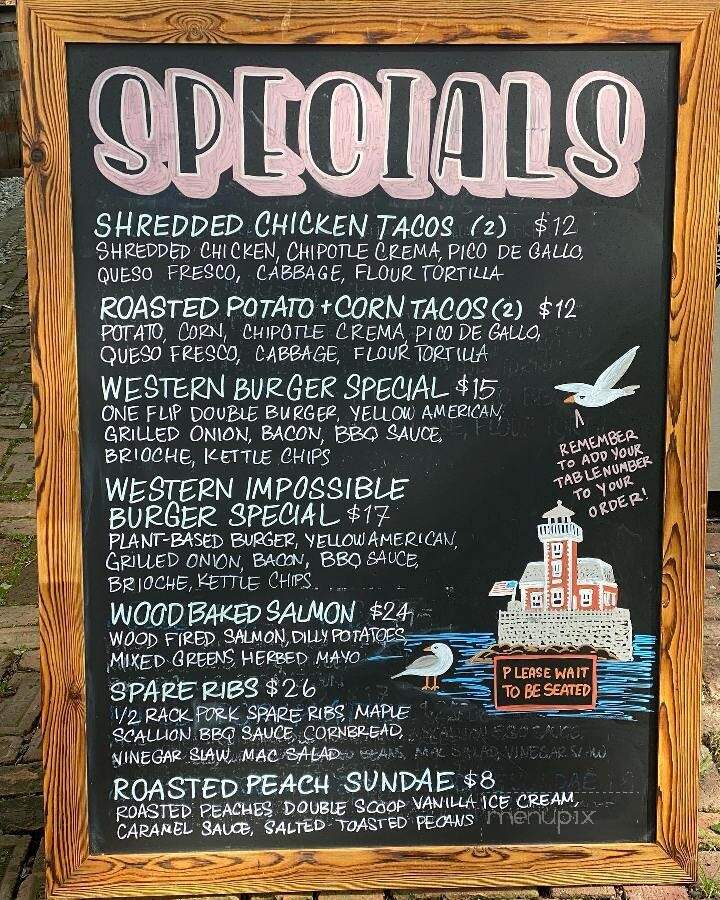 SPECIALS
SHREDDED CHICKEN TACOS (2) $12
SHREDDED CHICKEN, CHIPOTLE CREMA, PICO DE GALLO,
QUESO FRESCO, CABBAGE, FLOUR TORTILLA
ROASTED POTATO + CORN TACOS (2) $12
POTATO, CORN, CHIPOTLE CREMA, PICO DE GALLO,
QUESO FRESCO, CABBAGE, FLOUR TORTILLA
WESTERN BURGER SPECIAL $15
ONE FLIP DOUBLE BURGER, YELLOW AMERICAN,
GRILLED ONION, BACON, BBQ SAUCE,
BRIOCHE, KETTLE CHIPS
REMEMBER
TO ADD YOUR
TABLE NUMBER
TO YOUR
ORDER!
WESTERN IMPOSSIBLE
BURGER SPECIAL $17
PLANT-BASED BURGER, YELLOW AMERICAN,
GRILLED ONION, BACON, BBQ SAUCE,
BRIOCHE, KETTLE CHIPS
WOOD BAKED SALMON $24
WOOD FIRED SALMON, DILLY POTATOES
MIXED GREENS, HERBED MAYO
PLEASE WAIT
TO BE SEATED
SPARE RIBS $26
1/2 RACK PORK SPARE RIBS, MAPLE
SCALLION BBQ SAUCE, CORNBREAD,
VINEGAR SLAW, MAC SALAD
ROASTED PEACH SUNDAE $8
ROASTED PEACHES, DOUBLE SCOOP VANILLA ICE CREAM,
CARAMEL SAUCE, SALTED TOASTED PECANS
menupix